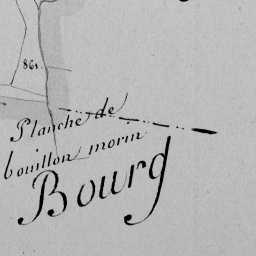 861.
Planche de
bouillon morin
Bourg